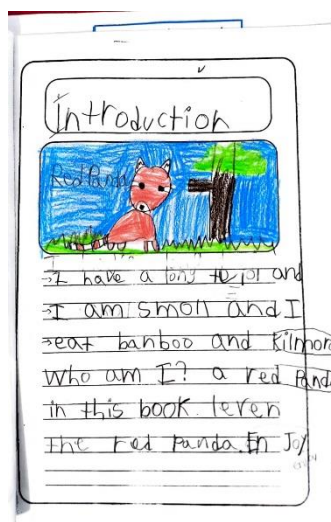 Introduction
Red Panda
I have a long teiol and
I am smoll and I
eat banboo and
Who am I? a red Panda
in this book. leren
the red panda. En Joy